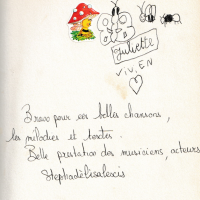 Juliette
VIVIEN
Bravo pour ces belles chansons,
les mélodies et textes.
Belle prestation des musiciens, acteurs
Stephadélisalexis